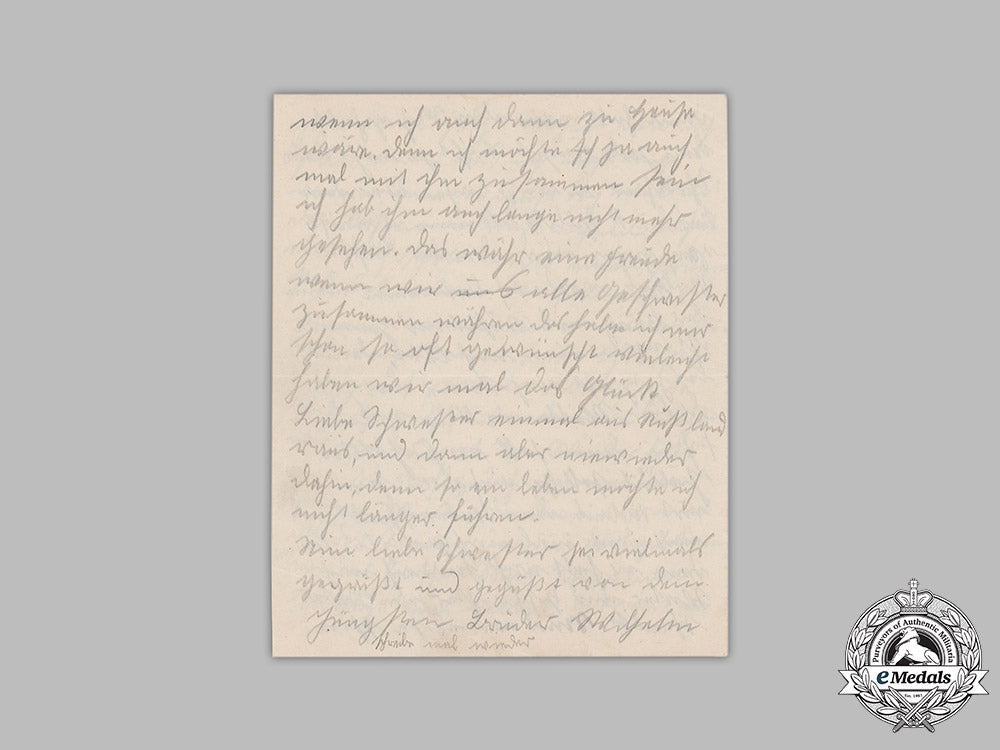 wenn ich auch dann zu Hause
wäre. denn ich möchte ja auch
mal mit ihm zusammen sein
ich hab ihm auch lange nicht mehr
gesehen. das währ eine freude
wenn wir uns alle Geschwister
zusammen währen das habe ich mir
schon so oft gewünscht vieleicht
haben wir mal das Glück
Liebe Schwester einmal aus Rußland
raus, und dann aber niewieder
dahin, denn so ein leben möchte ich
nicht länger führen.
Nun liebe Schwester sei vielmals
gegrüßt und geküßt von dein
jüngsten Bruder Wilhelm
Schreibe mal wieder
Purveyors of Authentic Militaria
eMedals